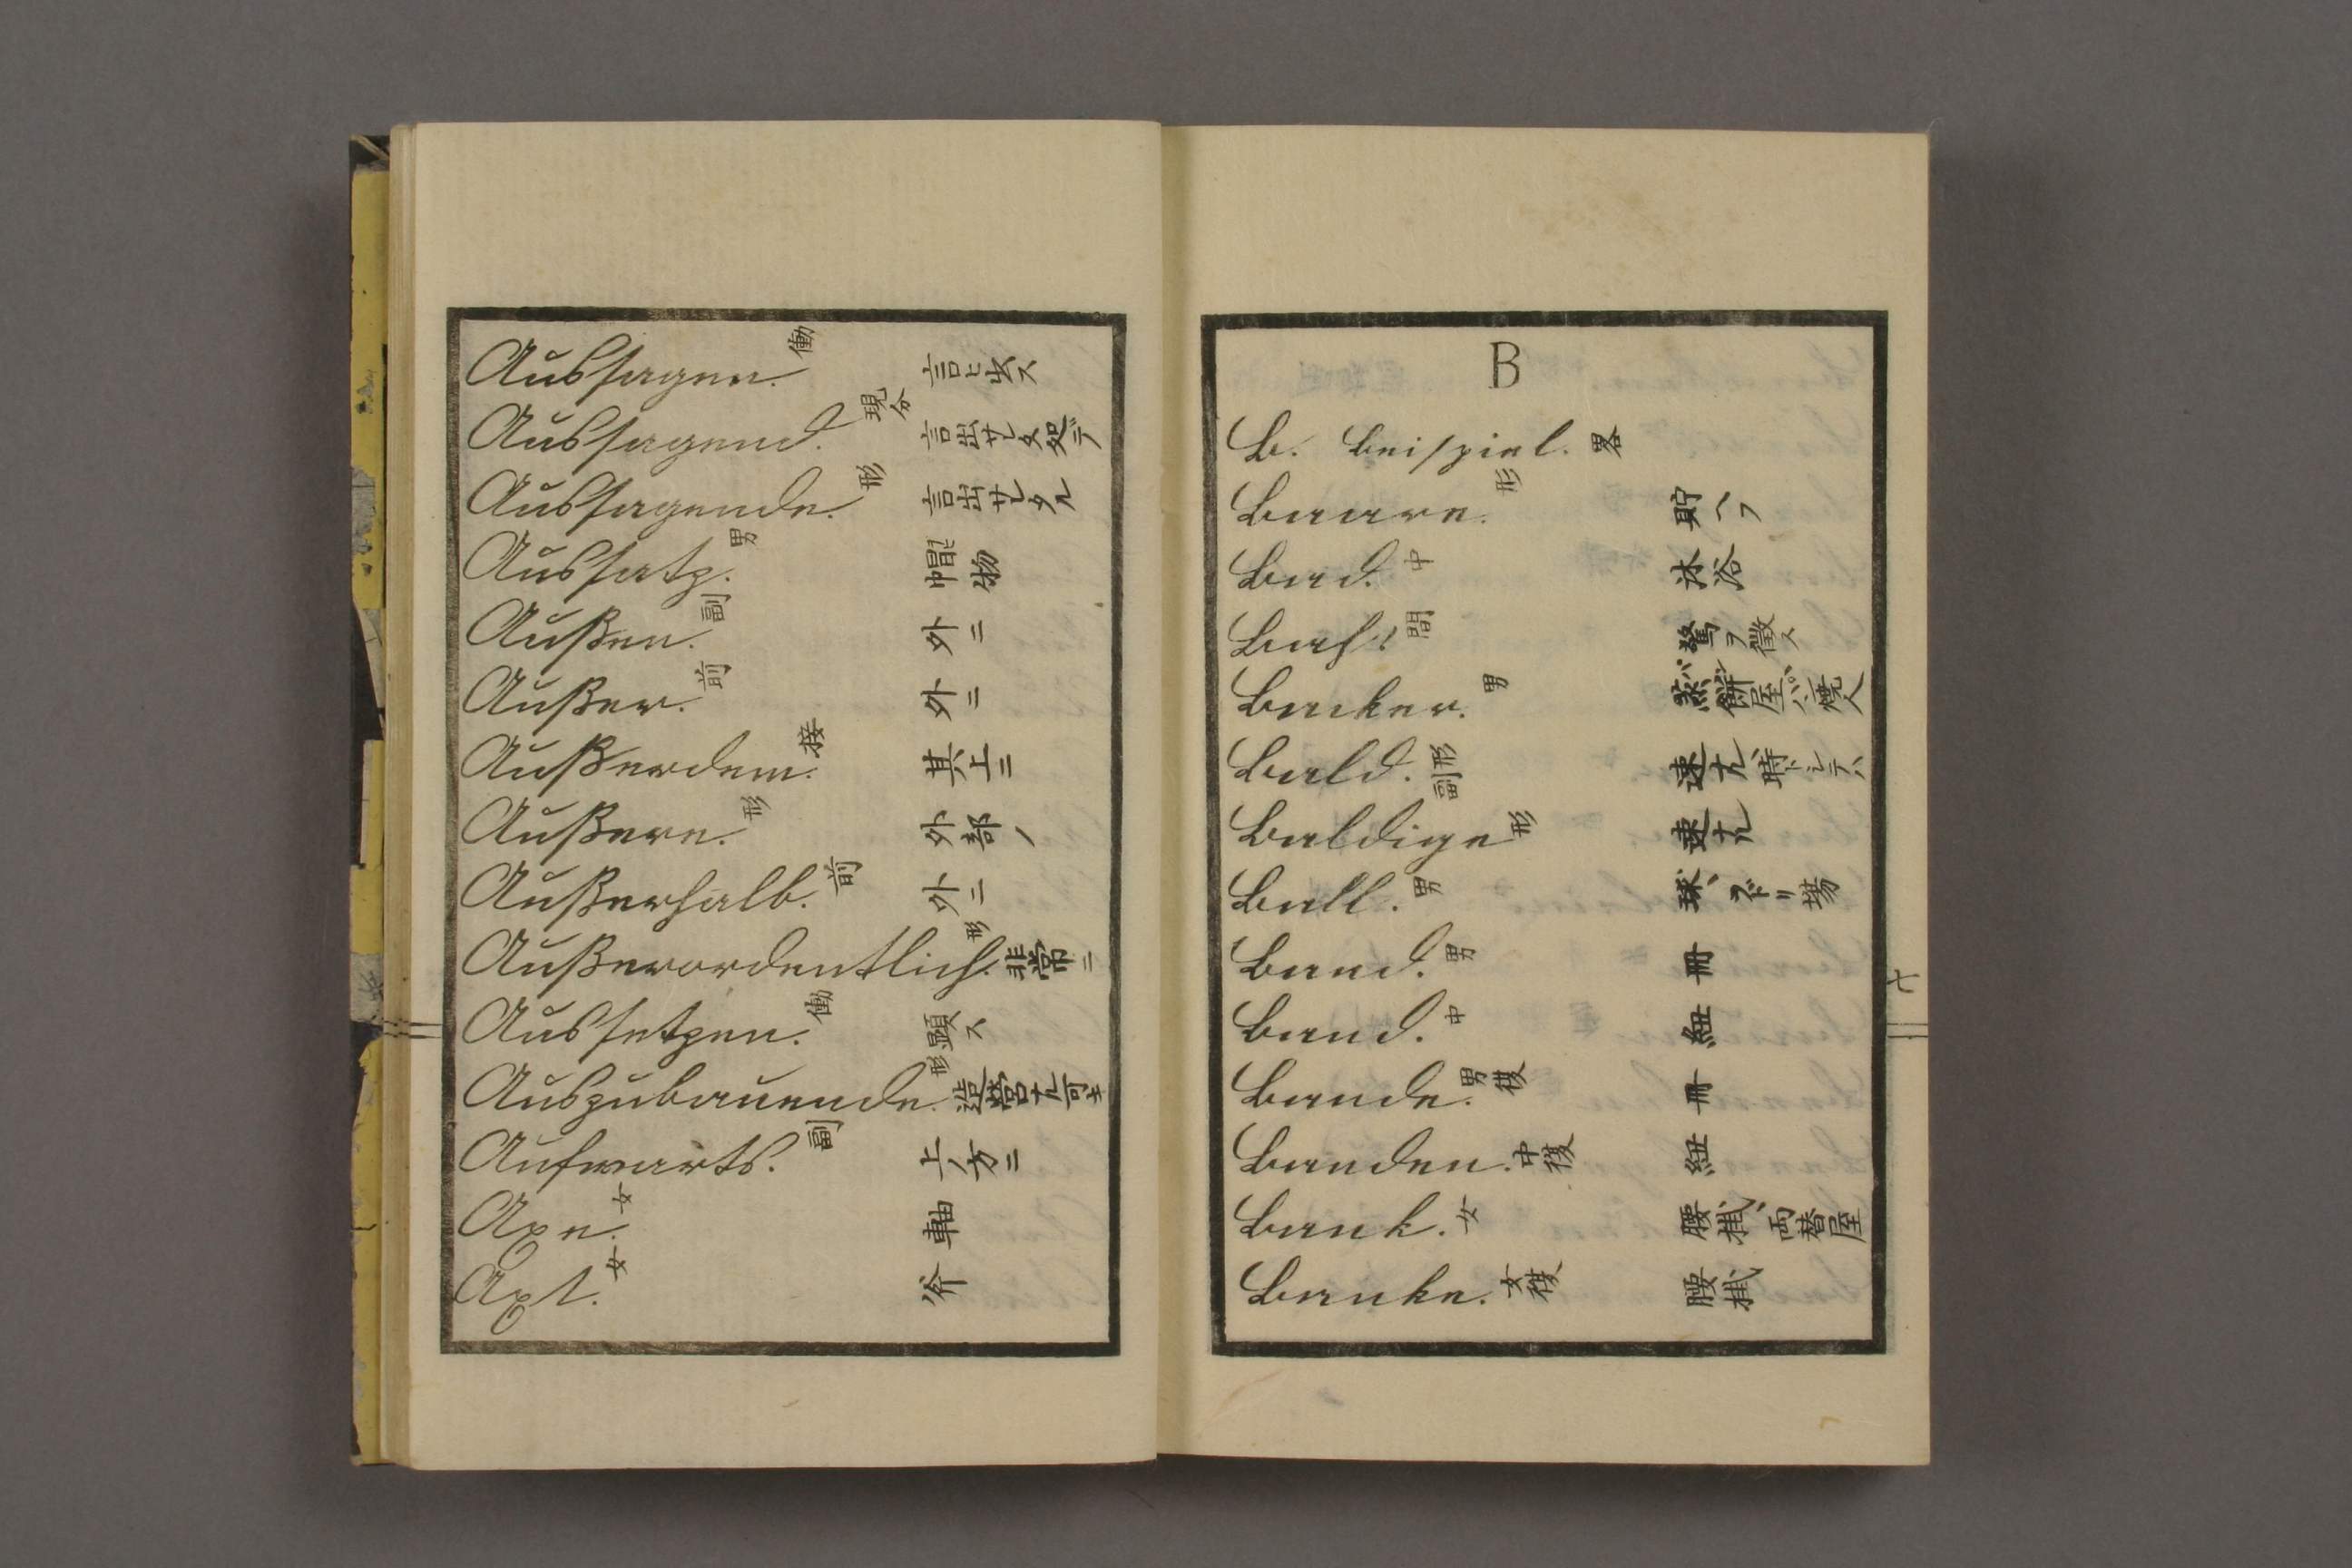 Aussagen. 働 言ヒ出ス
Aussagend. 現分 言出サレタ処デ
Aussagende. 形 言出サレタル
Aussatz. 男 物
Außen. 副 外ニ
Außer. 前 外ニ
Außerdem. 接 其上ニ
Außere. 形 外部ノ
Außerhalb. 前 外ニ
Außerordentlich. 形 非常ニ
Aussetzen. 働 顕ス
Auszubauende. 形 造営ナル可キ
Aufwarts. 副 上ノ方ニ
Axe. 女 軸
Axt. 女 斧
B
B. Beispiel. 畧
Baare. 形 貯ヘフ
Bad. 中 沐浴
Bah! 間 驚ヲ徴ス
Backer. 男 蒸餅屋 焼人
Bald. 形副 速ナル 時トシテハ
Baldige 形 速ナル
Ball. 男 球、ヲドリ場
Band. 男 冊
Band. 中 紐
Bande. 男複 冊
Banden. 中複 紐
Bank. 女 腰掛、両替屋
Banke. 女複 腰掛
七